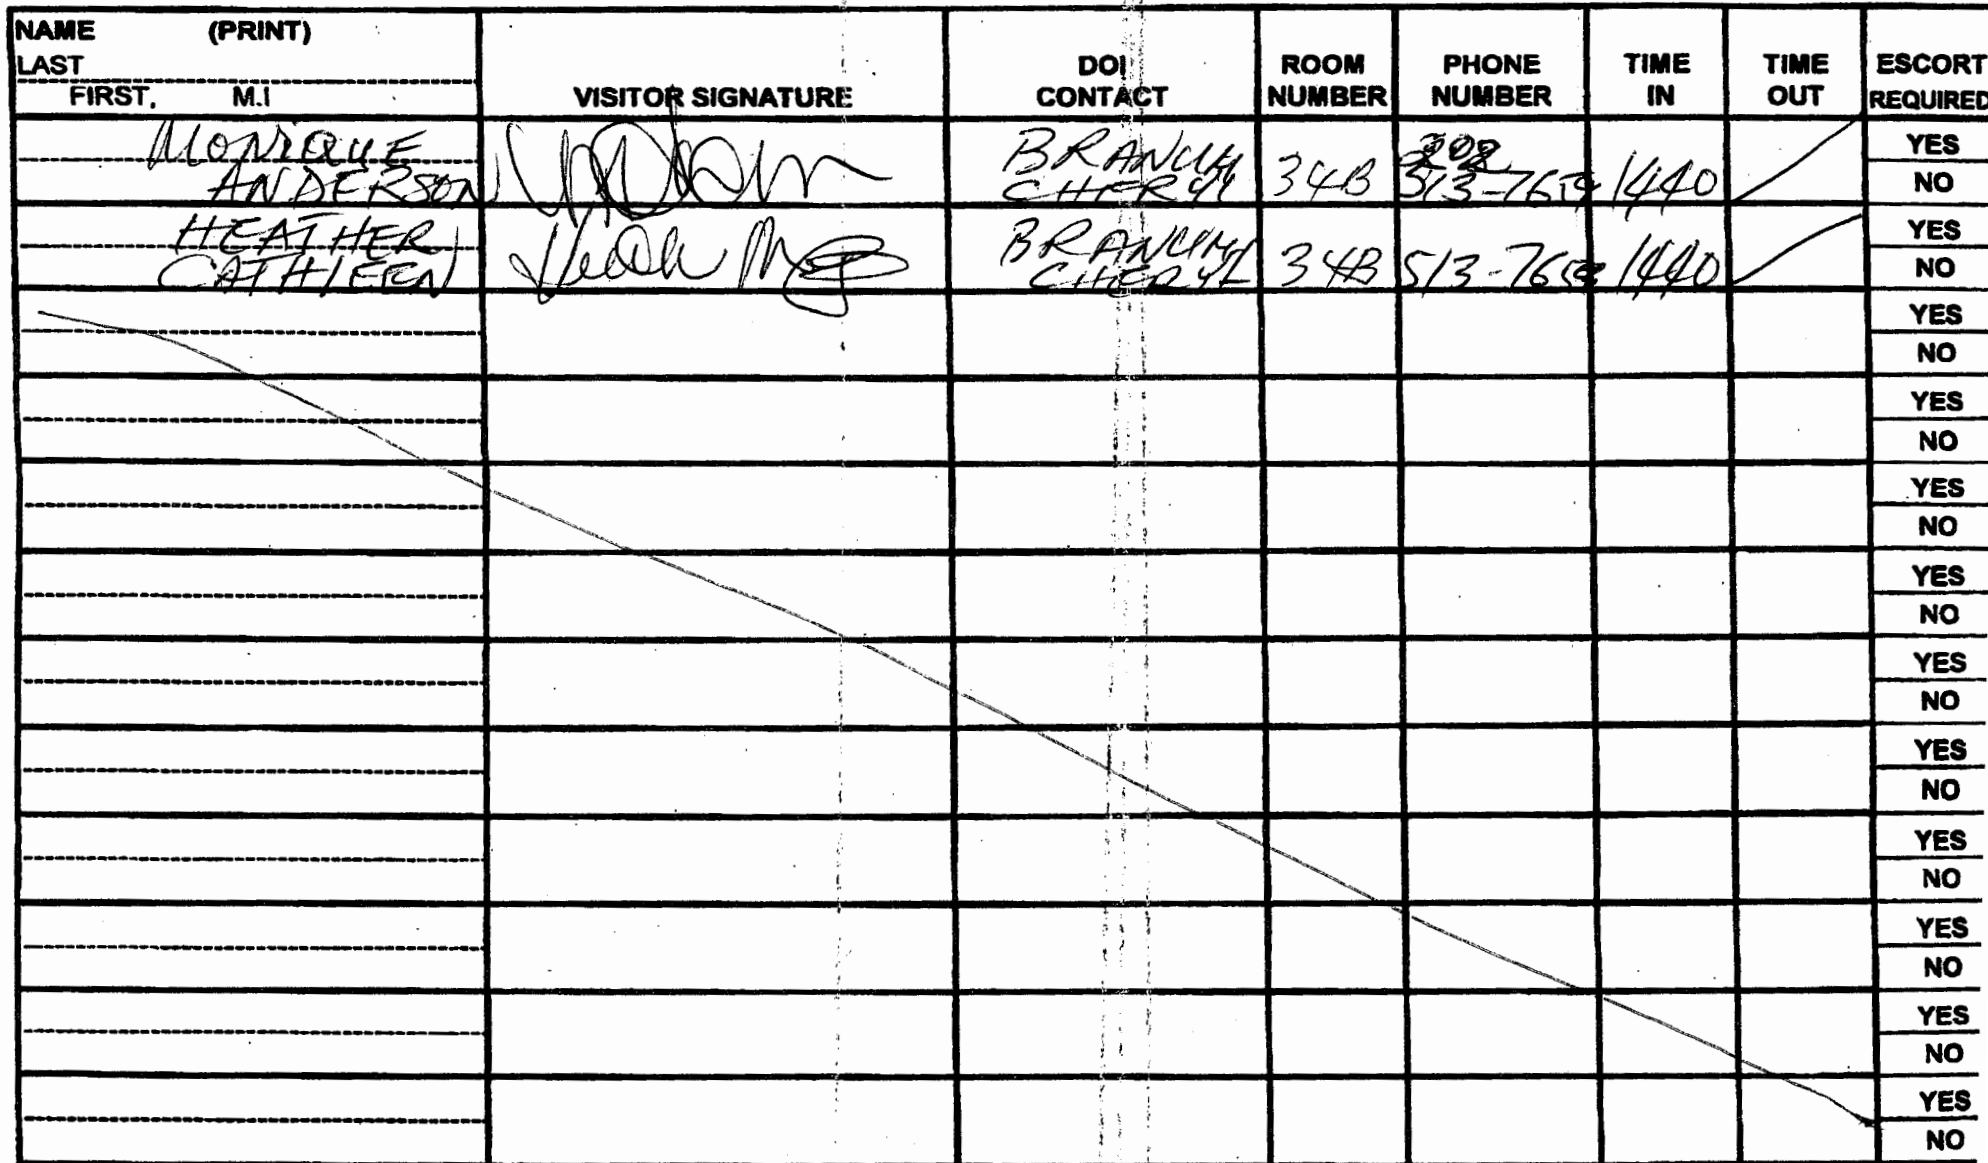 NAME (PRINT)
LAST
FIRST, M.I
VISITOR SIGNATURE
DOI CONTACT
ROOM NUMBER
PHONE NUMBER
TIME IN
TIME OUT
ESCORT REQUIRED
MONIQUE
ANDERSON
CHERYL
34B
202
1440
YES
NO
HEATHER
CATHLEEN
CHERYL
34B
1440
YES
NO
YES
NO
YES
NO
YES
NO
YES
NO
YES
NO
YES
NO
YES
NO
YES
NO
YES
NO
YES
NO